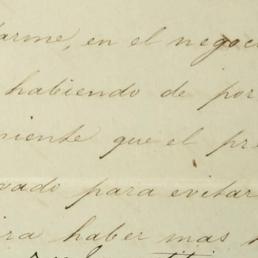 arme, en el negoc
habiendo de por
niente que el pr
vado para evitar
ra haber mas